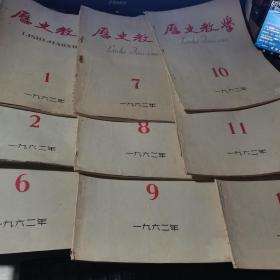 歷史教
LISHI JIAOXUE
1
一九六二年
歷史教
7
一九六二年
歷史教學
10
一九六二年
2
一九六二年
8
一九六二年
11
一九六二年
6
一九六二年
9
一九六二年